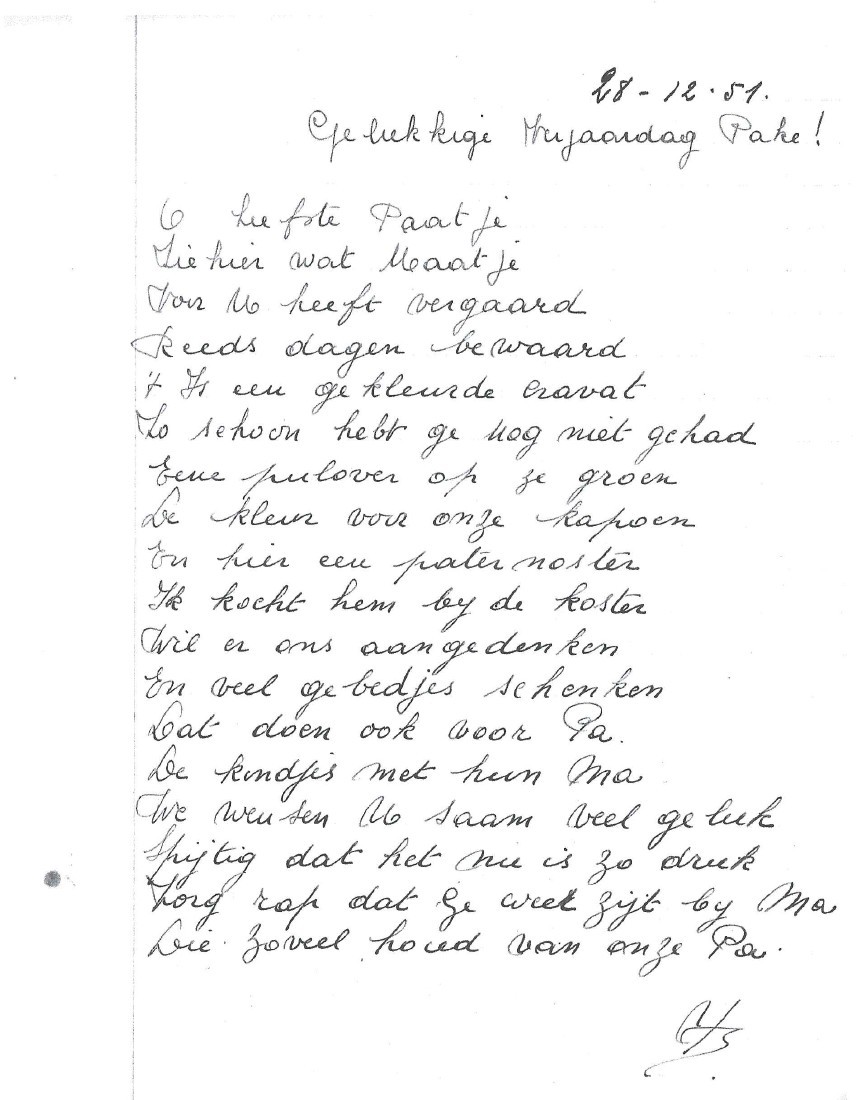 28-12-51.
Gelukkige Verjaardag Pake!
O liefste Paatje
Zie hier wat Maatje
Voor U heeft vergaard
Reeds dagen bewaard
't Is een gekleurde cravat
Zo schoon hebt ge nog niet gehad
Eene pulover op ze groen
De kleur voor onze kapoen
En hier een paternoster
Ik kocht hem by de koster
Wil er ons aangedenken
En veel gebedjes schenken
Dat doen ook voor Pa.
De kindjes met hun Ma
We wensen U saam veel geluk
Spijtig dat het nu is zo druk
Zorg rap dat Ge weer zijt by Ma
Die zoveel houd van onze Pa.